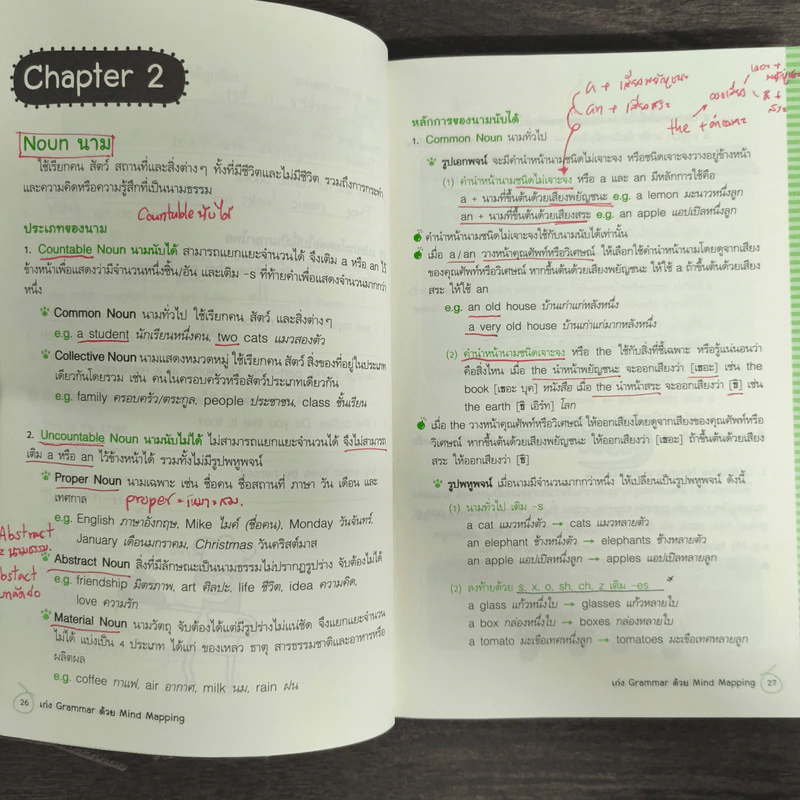 Chapter 2
Noun นาม
ใช้เรียกคน สัตว์ สถานที่และสิ่งต่างๆ ทั้งที่มีชีวิตและไม่มีชีวิต รวมถึงการกระทำ
และความคิดหรือความรู้สึกที่เป็นนามธรรม
Countable นับได้
ประเภทของนาม
1. Countable Noun นามนับได้ สามารถแยกแยะจำนวนได้ จึงเติม a หรือ an ไว้
ข้างหน้าเพื่อแสดงว่ามีจำนวนหนึ่งชิ้น/อัน และเติม -s ที่ท้ายคำเพื่อแสดงจำนวนมากกว่า
หนึ่ง
Common Noun นามทั่วไป ใช้เรียกคน สัตว์ และสิ่งต่างๆ
e.g. a student นักเรียนหนึ่งคน, two cats แมวสองตัว
Collective Noun นามแสดงหมวดหมู่ ใช้เรียกคน สัตว์ สิ่งของที่อยู่ในประเภท
เดียวกันโดยรวม เช่น คนในครอบครัวหรือสัตว์ประเภทเดียวกัน
e.g. family ครอบครัว/ตระกูล, people ประชาชน, class ชั้นเรียน
2. Uncountable Noun นามนับไม่ได้ ไม่สามารถแยกแยะจำนวนได้ จึงไม่สามารถ
เติม a หรือ an ไว้ข้างหน้าได้ รวมทั้งไม่มีรูปพหูพจน์
Proper Noun นามเฉพาะ เช่น ชื่อคน ชื่อสถานที่ ภาษา วัน เดือน และ
เทศกาล
proper = เหมาะสม.
e.g. English ภาษาอังกฤษ, Mike ไมค์ (ชื่อคน), Monday วันจันทร์,
January เดือนมกราคม, Christmas วันคริสต์มาส
Abstract
= นามธรรม.
Abstract Noun สิ่งที่มีลักษณะเป็นนามธรรมไม่ปรากฏรูปร่าง จับต้องไม่ได้
e.g. friendship มิตรภาพ, art ศิลปะ, life ชีวิต, idea ความคิด,
love ความรัก
Material Noun นามวัตถุ จับต้องได้แต่มีรูปร่างไม่แน่ชัด จึงแยกแยะจำนวน
ไม่ได้ แบ่งเป็น 4 ประเภท ได้แก่ ของเหลว ธาตุ สารธรรมชาติและอาหารหรือ
ผลิตผล
e.g. coffee กาแฟ, air อากาศ, milk นม, rain ฝน
26 เก่ง Grammar ด้วย Mind Mapping
a + เสียงพยัญชนะ
an + เสียงสระ
ออกเสียง
the + คำนาม
หลักการของนามนับได้
1. Common Noun นามทั่วไป
รูปเอกพจน์ จะมีคำนำหน้านามชนิดไม่เจาะจง หรือชนิดเจาะจงวางอยู่ข้างหน้า
(1) คำนำหน้านามชนิดไม่เจาะจง หรือ a และ an มีหลักการใช้คือ
a + นามที่ขึ้นต้นด้วยเสียงพยัญชนะ e.g. a lemon มะนาวหนึ่งลูก
an + นามที่ขึ้นต้นด้วยเสียงสระ e.g. an apple แอปเปิลหนึ่งลูก
คำนำหน้านามชนิดไม่เจาะจงใช้กับนามนับได้เท่านั้น
เมื่อ a/an วางหน้าคุณศัพท์หรือวิเศษณ์ ให้เลือกใช้คำนำหน้านามโดยดูจากเสียง
ของคุณศัพท์หรือวิเศษณ์ หากขึ้นต้นด้วยเสียงพยัญชนะ ให้ใช้ a ถ้าขึ้นต้นด้วยเสียง
สระ ให้ใช้ an
e.g. an old house บ้านเก่าแก่หลังหนึ่ง
a very old house บ้านเก่าแก่มากหลังหนึ่ง
(2) คำนำหน้านามชนิดเจาะจง หรือ the ใช้กับสิ่งที่ชี้เฉพาะ หรือรู้แน่นอนว่า
คือสิ่งไหน เมื่อ the นำหน้าพยัญชนะ จะออกเสียงว่า [เธอะ] เช่น the
book [เธอะ บุค] หนังสือ เมื่อ the นำหน้าสระ จะออกเสียงว่า [ธิ] เช่น
the earth [ธิ เอิร์ท] โลก
เมื่อ the วางหน้าคุณศัพท์หรือวิเศษณ์ ให้ออกเสียงโดยดูจากเสียงของคุณศัพท์หรือ
วิเศษณ์ หากขึ้นต้นด้วยเสียงพยัญชนะ ให้ออกเสียงว่า [เธอะ] ถ้าขึ้นต้นด้วยเสียง
สระ ให้ออกเสียงว่า [ธิ]
รูปพหูพจน์ เมื่อนามมีจำนวนมากกว่าหนึ่ง ให้เปลี่ยนเป็นรูปพหูพจน์ ดังนี้
(1) นามทั่วไป เติม -s
a cat แมวหนึ่งตัว → cats แมวหลายตัว
an elephant ช้างหนึ่งตัว → elephants ช้างหลายตัว
an apple แอปเปิลหนึ่งลูก → apples แอปเปิลหลายลูก
(2) ลงท้ายด้วย s, x, o, sh, ch, z เติม -es
a glass แก้วหนึ่งใบ → glasses แก้วหลายใบ
a box กล่องหนึ่งใบ → boxes กล่องหลายใบ
a tomato มะเขือเทศหนึ่งลูก → tomatoes มะเขือเทศหลายลูก
เก่ง Grammar ด้วย Mind Mapping 27